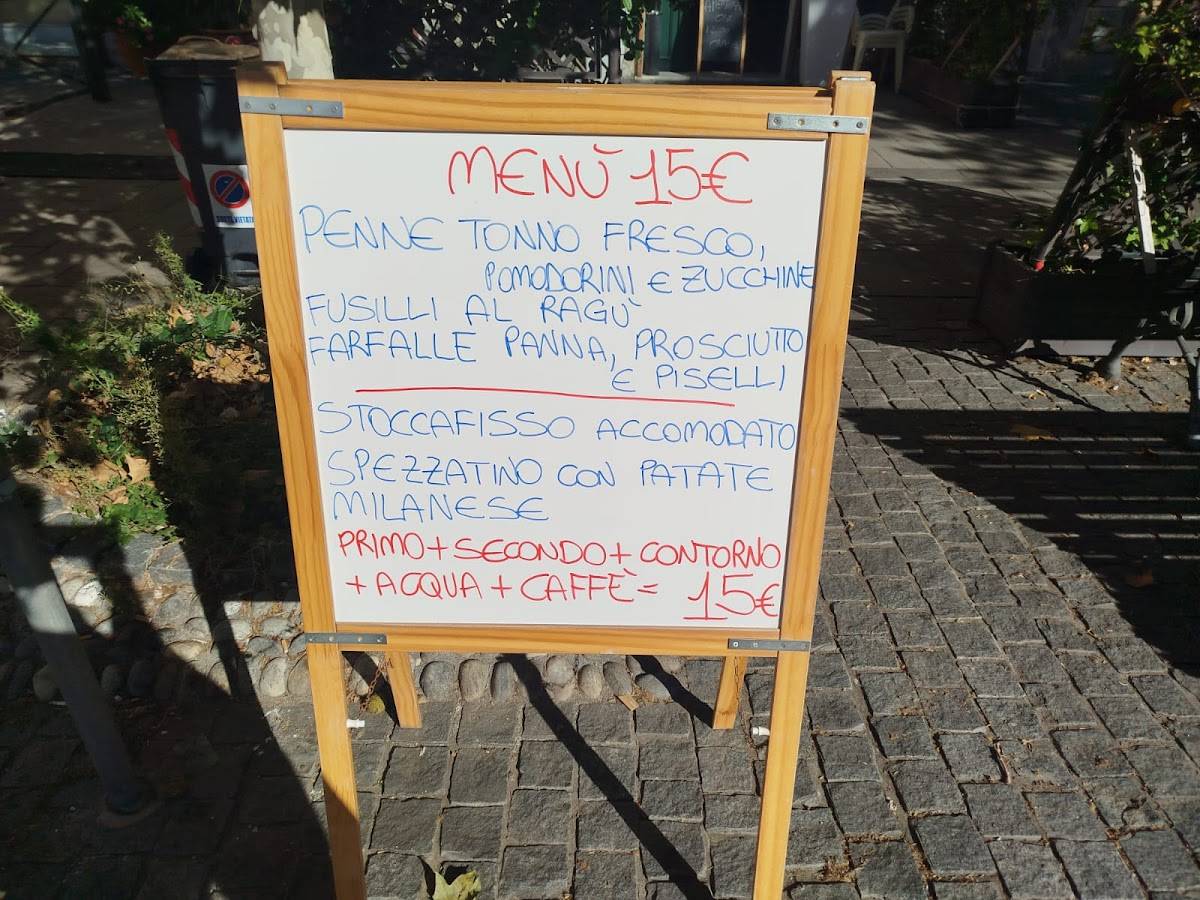 MENÙ 15€
PENNE TONNO FRESCO,
POMODORINI E ZUCCHINE
FUSILLI AL RAGÙ
FARFALLE PANNA, PROSCIUTTO
E PISELLI
STOCCAFISSO ACCOMODATO
SPEZZATINO CON PATATE
MILANESE
PRIMO + SECONDO + CONTORNO
+ ACQUA + CAFFÈ = 15€